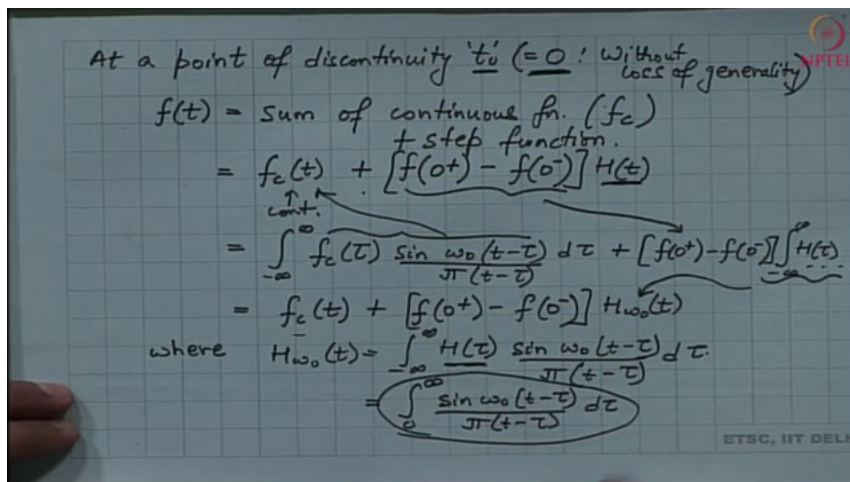 At a point of discontinuity 't₀' (= 0 : without loss of generality)
NPTEL
f(t) = sum of continuous fn. (f_c)
+ step function.
= f_c(t) + [f(0⁺) - f(0⁻)] H(t)
cont.
= ∫_{-∞}^{∞} f_c(τ) sin ω₀(t-τ)/π(t-τ) dτ + [f(0⁺) - f(0⁻)] ∫_{-∞}^{∞} H(τ) ...
= f_c(t) + [f(0⁺) - f(0⁻)] H_{ω₀}(t)
where H_{ω₀}(t) = ∫_{-∞}^{∞} H(τ) sin ω₀(t-τ)/π(t-τ) dτ.
= ∫_{0}^{∞} sin ω₀(t-τ)/π(t-τ) dτ
ETSC, IIT DELH